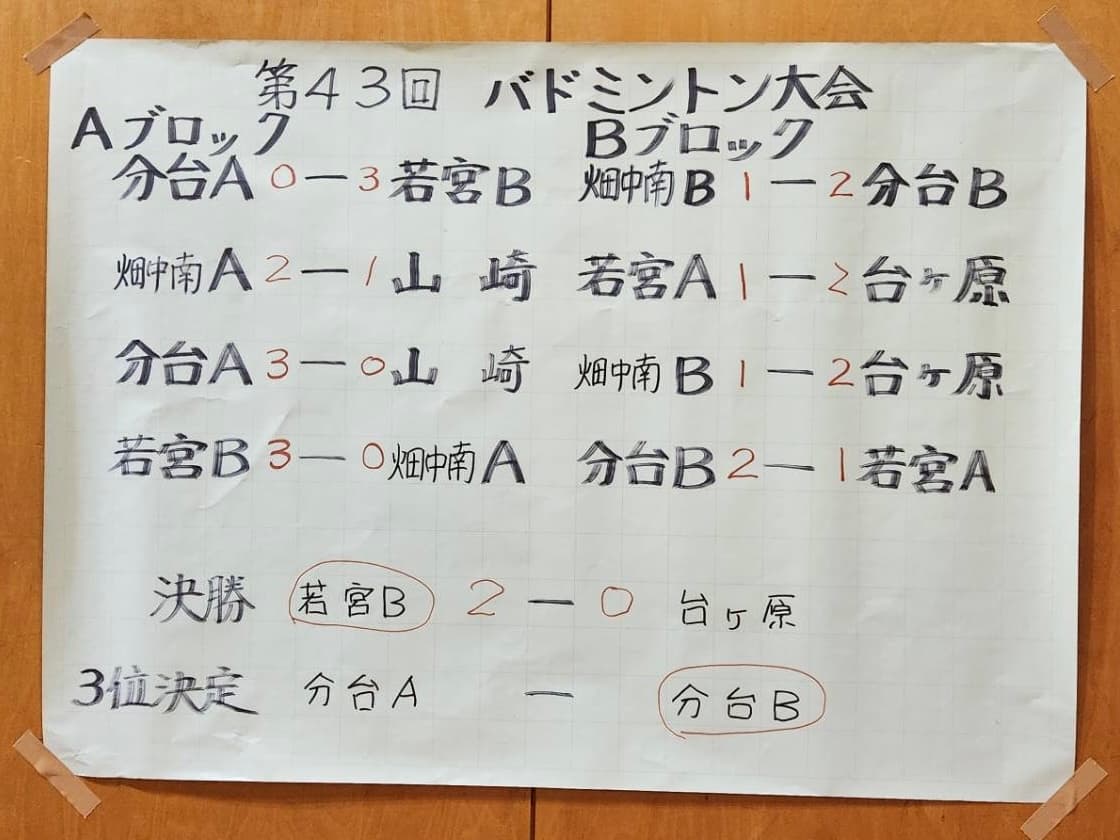 第43回 バドミントン大会
Aブロック
分台A 0 ― 3 若宮B
畑中南A 2 ― 1 山 崎
分台A 3 ― 0 山 崎
若宮B 3 ― 0 畑中南A
Bブロック
畑中南B 1 ― 2 分台B
若宮A 1 ― 2 台ヶ原
畑中南B 1 ― 2 台ヶ原
分台B 2 ― 1 若宮A
決勝 若宮B 2 ― 0 台ヶ原
3位決定 分台A ― 分台B